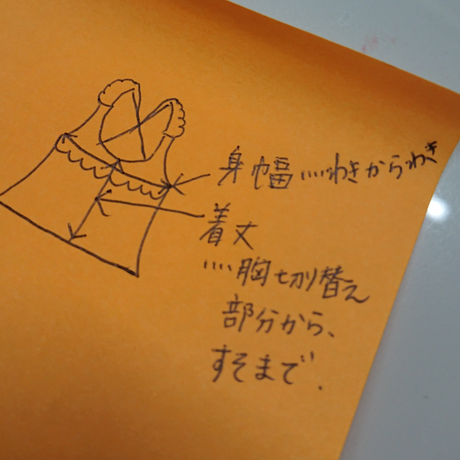 身幅....わきからわき
着丈
....胸切り替え
部分から、
すそまで.